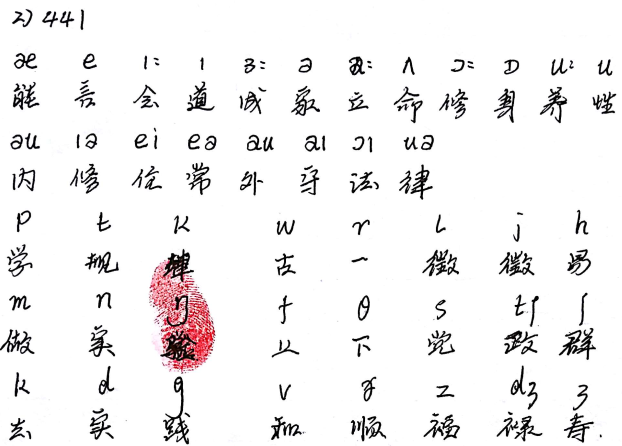 2) 441
æ e ı: ı ɜ: ə ɑ: ʌ ɔ: ɒ u: u
能 言 会 道 成 家 立 命 修 身 养 性
əu ıə ei eə au aı ɔı uə
内 修 信 常 外 守 法 律
p t k w r l j h
学 规 律 古 一 微 微 易
m n ŋ f θ s tʃ ʃ
做 实 验 上 下 党 政 群
k d g v ð z dʒ ʒ
去 实 践 和 顺 福 禄 寿.